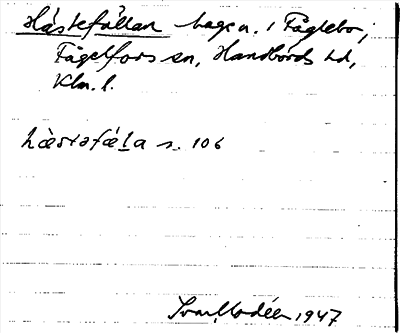 Hästefällan hage n. i Fåglebo,
Fågelfors sn, Handbörds hd,
Klm. l.
hæstəfæḷa s. 106
Ivar Modéer 1947